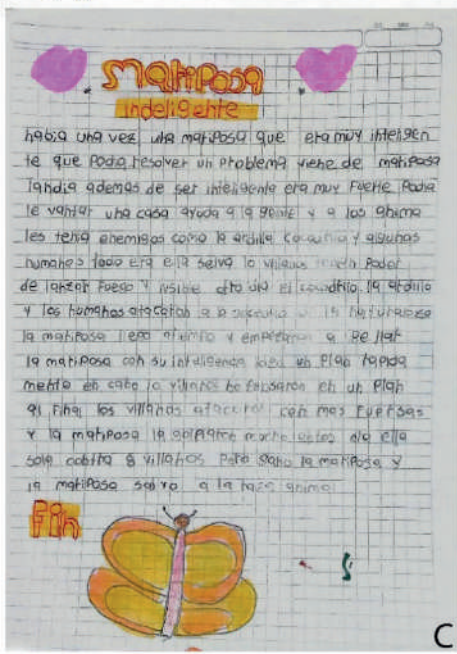 Mariposa
indeligente
había una vez una mariposa que era muy inteligen
te que podia resolver un problema viene de mariposa
landia ademas de ser inteligente era muy fuerte podia
le vantar una casa ayuda a la gente y a los anima
les tenia enemigos como la ardilla y algunas
humanos todo era e la selva lo villanos poder
de lanzar fuego y otro dia el la ardilla
y los humanos atacaron a la naturaleza
la mariposa llego y empezaron a pe llar
la mariposa con su inteligencia un plan rapida
mente en cabio lo villanos no en un plan
al final los villanos atacaron con mas fuersas
y la mariposa la golpiaron ella
sola contra 8 villanos pero gano la mariposa y
la mariposa salvo a la raza anima
Fin
C